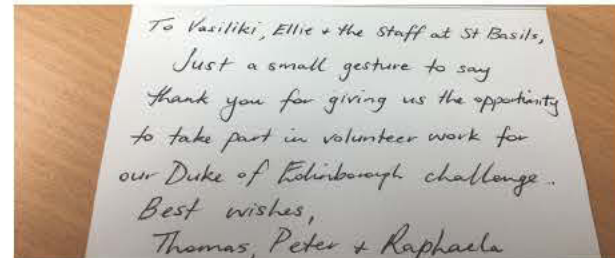 To Vasiliki, Ellie + the Staff at St Basils,
Just a small gesture to say
thank you for giving us the opportunity
to take part in volunteer work for
our Duke of Edinborough challenge.
Best wishes,
Thomas, Peter + Raphaela